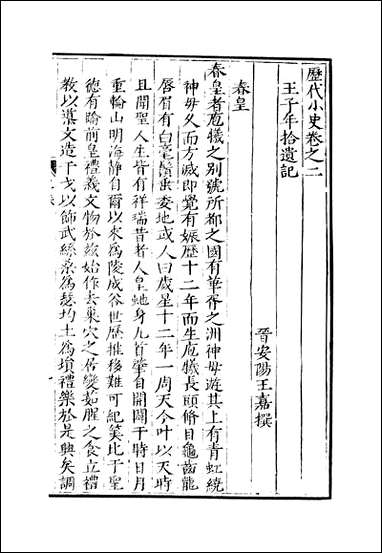 歷代小史卷之二
王子年拾遺記
晉安陽王嘉撰
春皇
春皇者庖犧之別號所都之國有華胥之洲神母遊其上有青虹繞
神母久而方滅即覺有娠歷十二年而生庖犧長頭脩目龜齒龍
唇眉有白毫鬚垂委地或人曰歲星十二年一周天今叶以天時
且聞聖人生皆有祥瑞昔者人皇蛇身九首肇自開闢于時日月
重輪山明海靜自爾以來為陵成谷世歷推移難可紀筭比于聖
德有踰前皇禮義文物於茲始作去巢穴之居變茹腥之食立禮
教以導文造干戈以飾武絲桑為瑟均土為塤禮樂於是興矣調